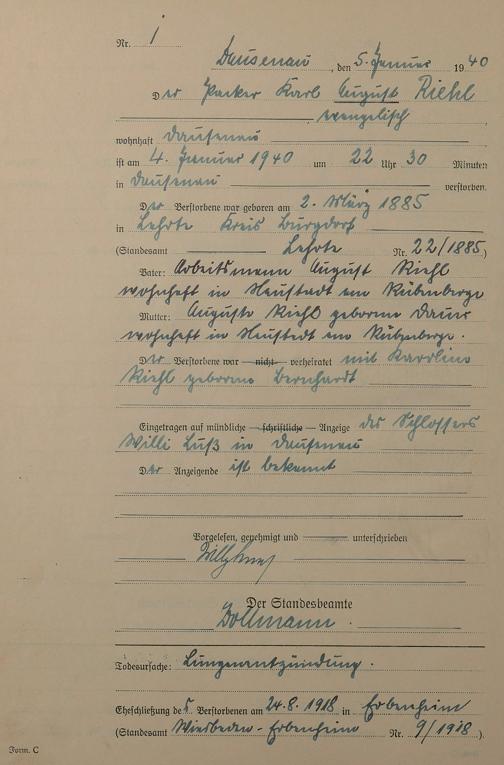 Nr. 1
Dausenau, den 5. Januar 1940
Der Packer Karl August Riehl
evangelisch
wohnhaft Dausenau
ist am 4. Januar 1940 um 22 Uhr 30 Minuten
in Dausenau verstorben.
Der Verstorbene war geboren am 2. März 1885
in Lehrte Kreis Burgdorf
(Standesamt Lehrte Nr. 22/1885)
Vater: Arbeitsmann August Riehl
wohnhaft in Neustadt am Rübenberge
Mutter: Auguste Riehl geborene
wohnhaft in Neustadt am Rübenberge.
Der Verstorbene war nicht verheiratet mit Karoline
Riehl geborene Bernhardt
Eingetragen auf mündliche schriftliche Anzeige des Schlossers
Willi Luß in Dausenau
Der Anzeigende ist bekannt
Vorgelesen, genehmigt und unterschrieben
Der Standesbeamte
Bollmann.
Todesursache: Lungenentzündung.
Eheschließung des Verstorbenen am 24.8.1918 in Erbenheim
(Standesamt Wiesbaden-Erbenheim Nr. 9/1918).
Form. C